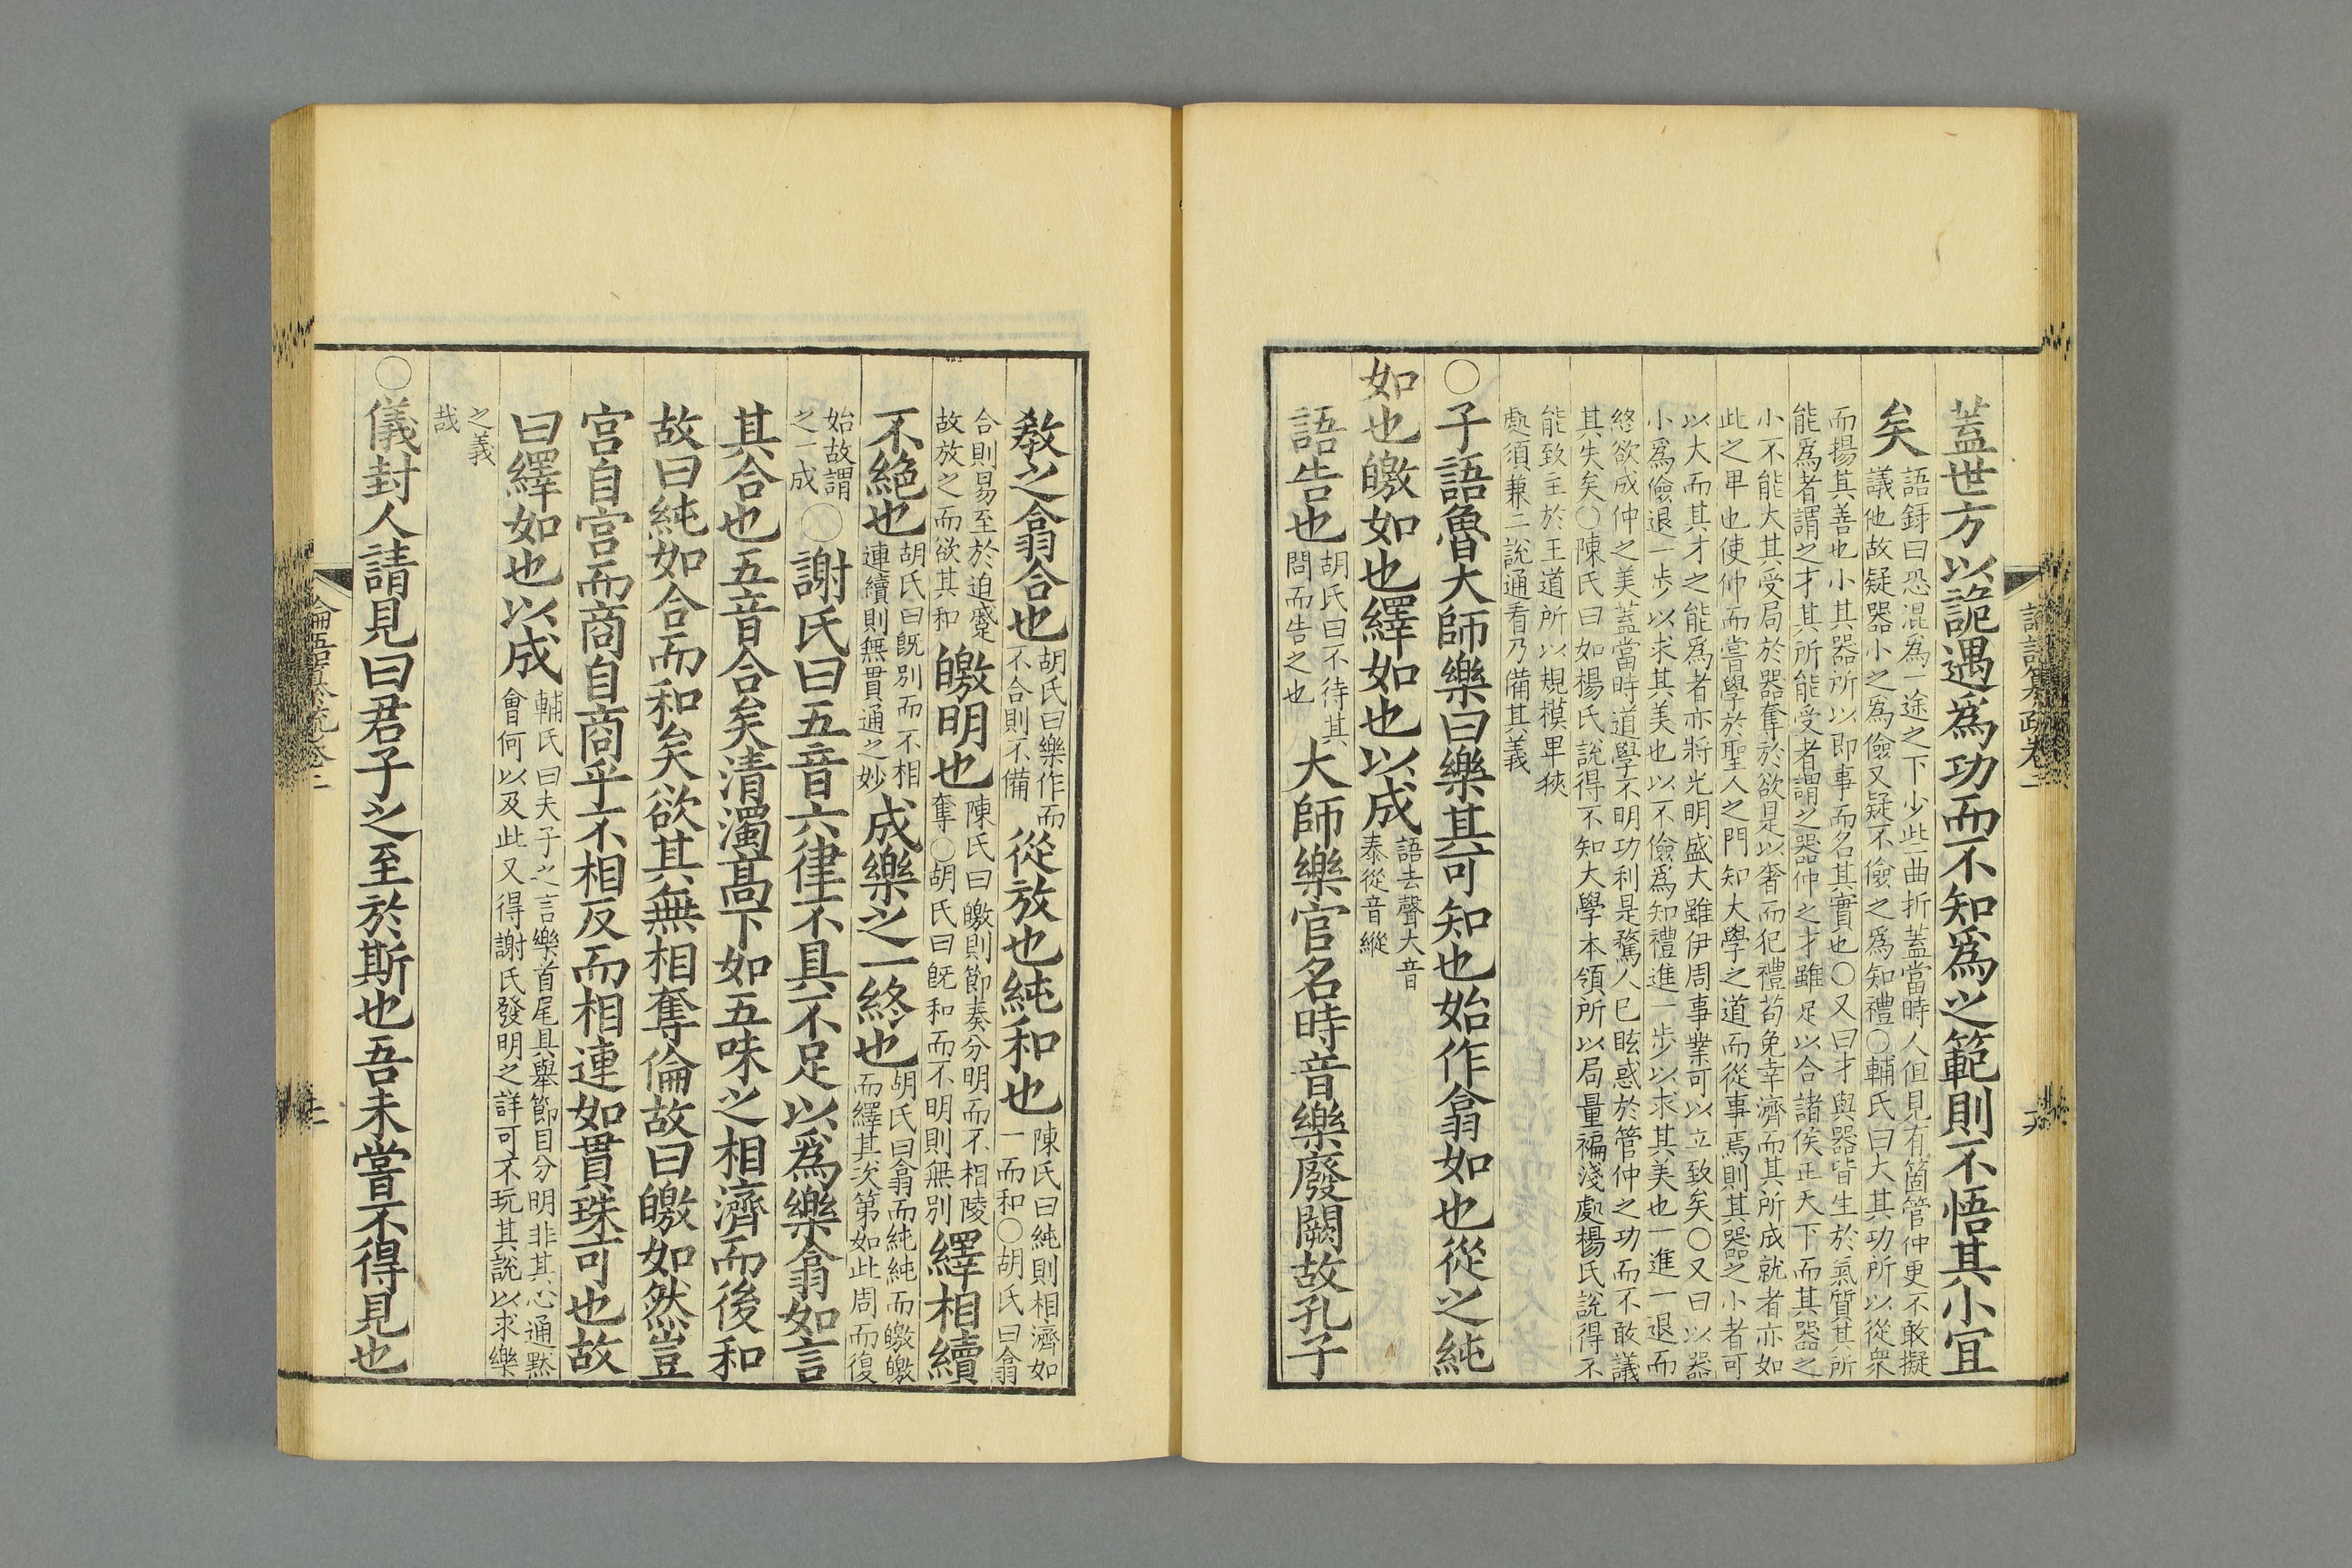 蓋世方以詭遇爲功而不知爲之範則不悟其小宜
矣
語錄曰恐混爲一途之下少些曲折蓋當時人但見有箇管仲更不敢擬
議他故疑器小之爲儉又疑不儉之爲知禮○輔氏曰大其功所以從衆
而揚其善也小其器所以即事而名其實也○又曰才與器皆生於氣質其所
能爲者謂之才其所能受者謂之器仲之才雖足以合諸侯正天下而其器之
小不能大其受局於器奪於欲是以奢而犯禮苟免幸濟而其所成就者亦如
此之卑也使仲而嘗學於聖人之門知大學之道而從事焉則其器之小者可
以大而其才之能爲者亦將光明盛大雖伊周事業可以立致矣○又曰以器
小爲儉退一步以求其美也以不儉爲知禮進一步以求其美也一進一退而
終欲成仲之美蓋當時道學不明功利是騖人已眩惑於管仲之功而不敢議
其失矣○陳氏曰如楊氏說得不知大學本領所以局量褊淺處楊氏說得不
能致主於王道所以規模卑狹
處須兼二說通看乃備其義
○子語魯大師樂曰樂其可知也始作翕如也從之純
如也皦如也繹如也以成
語去聲大音
泰從音縱
語告也
胡氏曰不待其
問而告之也
大師樂官名時音樂廢闕故孔子
教之翕合也
胡氏曰樂作而
不合則不備
從放也純和也
陳氏曰純則相濟如
一而和○胡氏曰翕
合則易至於迫蹙
故放之而欲其和
皦明也
陳氏曰皦則節奏分明而不相陵
奪○胡氏曰旣和而不明則無別
繹相續
不絶也
胡氏曰旣別而不相
連續則無貫通之妙
成樂之一終也
胡氏曰翕而純純而皦皦
而繹其次第如此周而復
始故謂
之一成
○謝氏曰五音六律不具不足以爲樂翕如言
其合也五音合矣清濁高下如五味之相濟而後和
故曰純如合而和矣欲其無相奪倫故曰皦如然豈
宮自宮而商自商乎不相反而相連如貫珠可也故
曰繹如也以成
輔氏曰夫子之言樂首尾具舉節目分明非其心通黙
會何以及此又得謝氏發明之詳可不玩其說以求樂
之義
哉
○儀封人請見曰君子之至於斯也吾未嘗不得見也